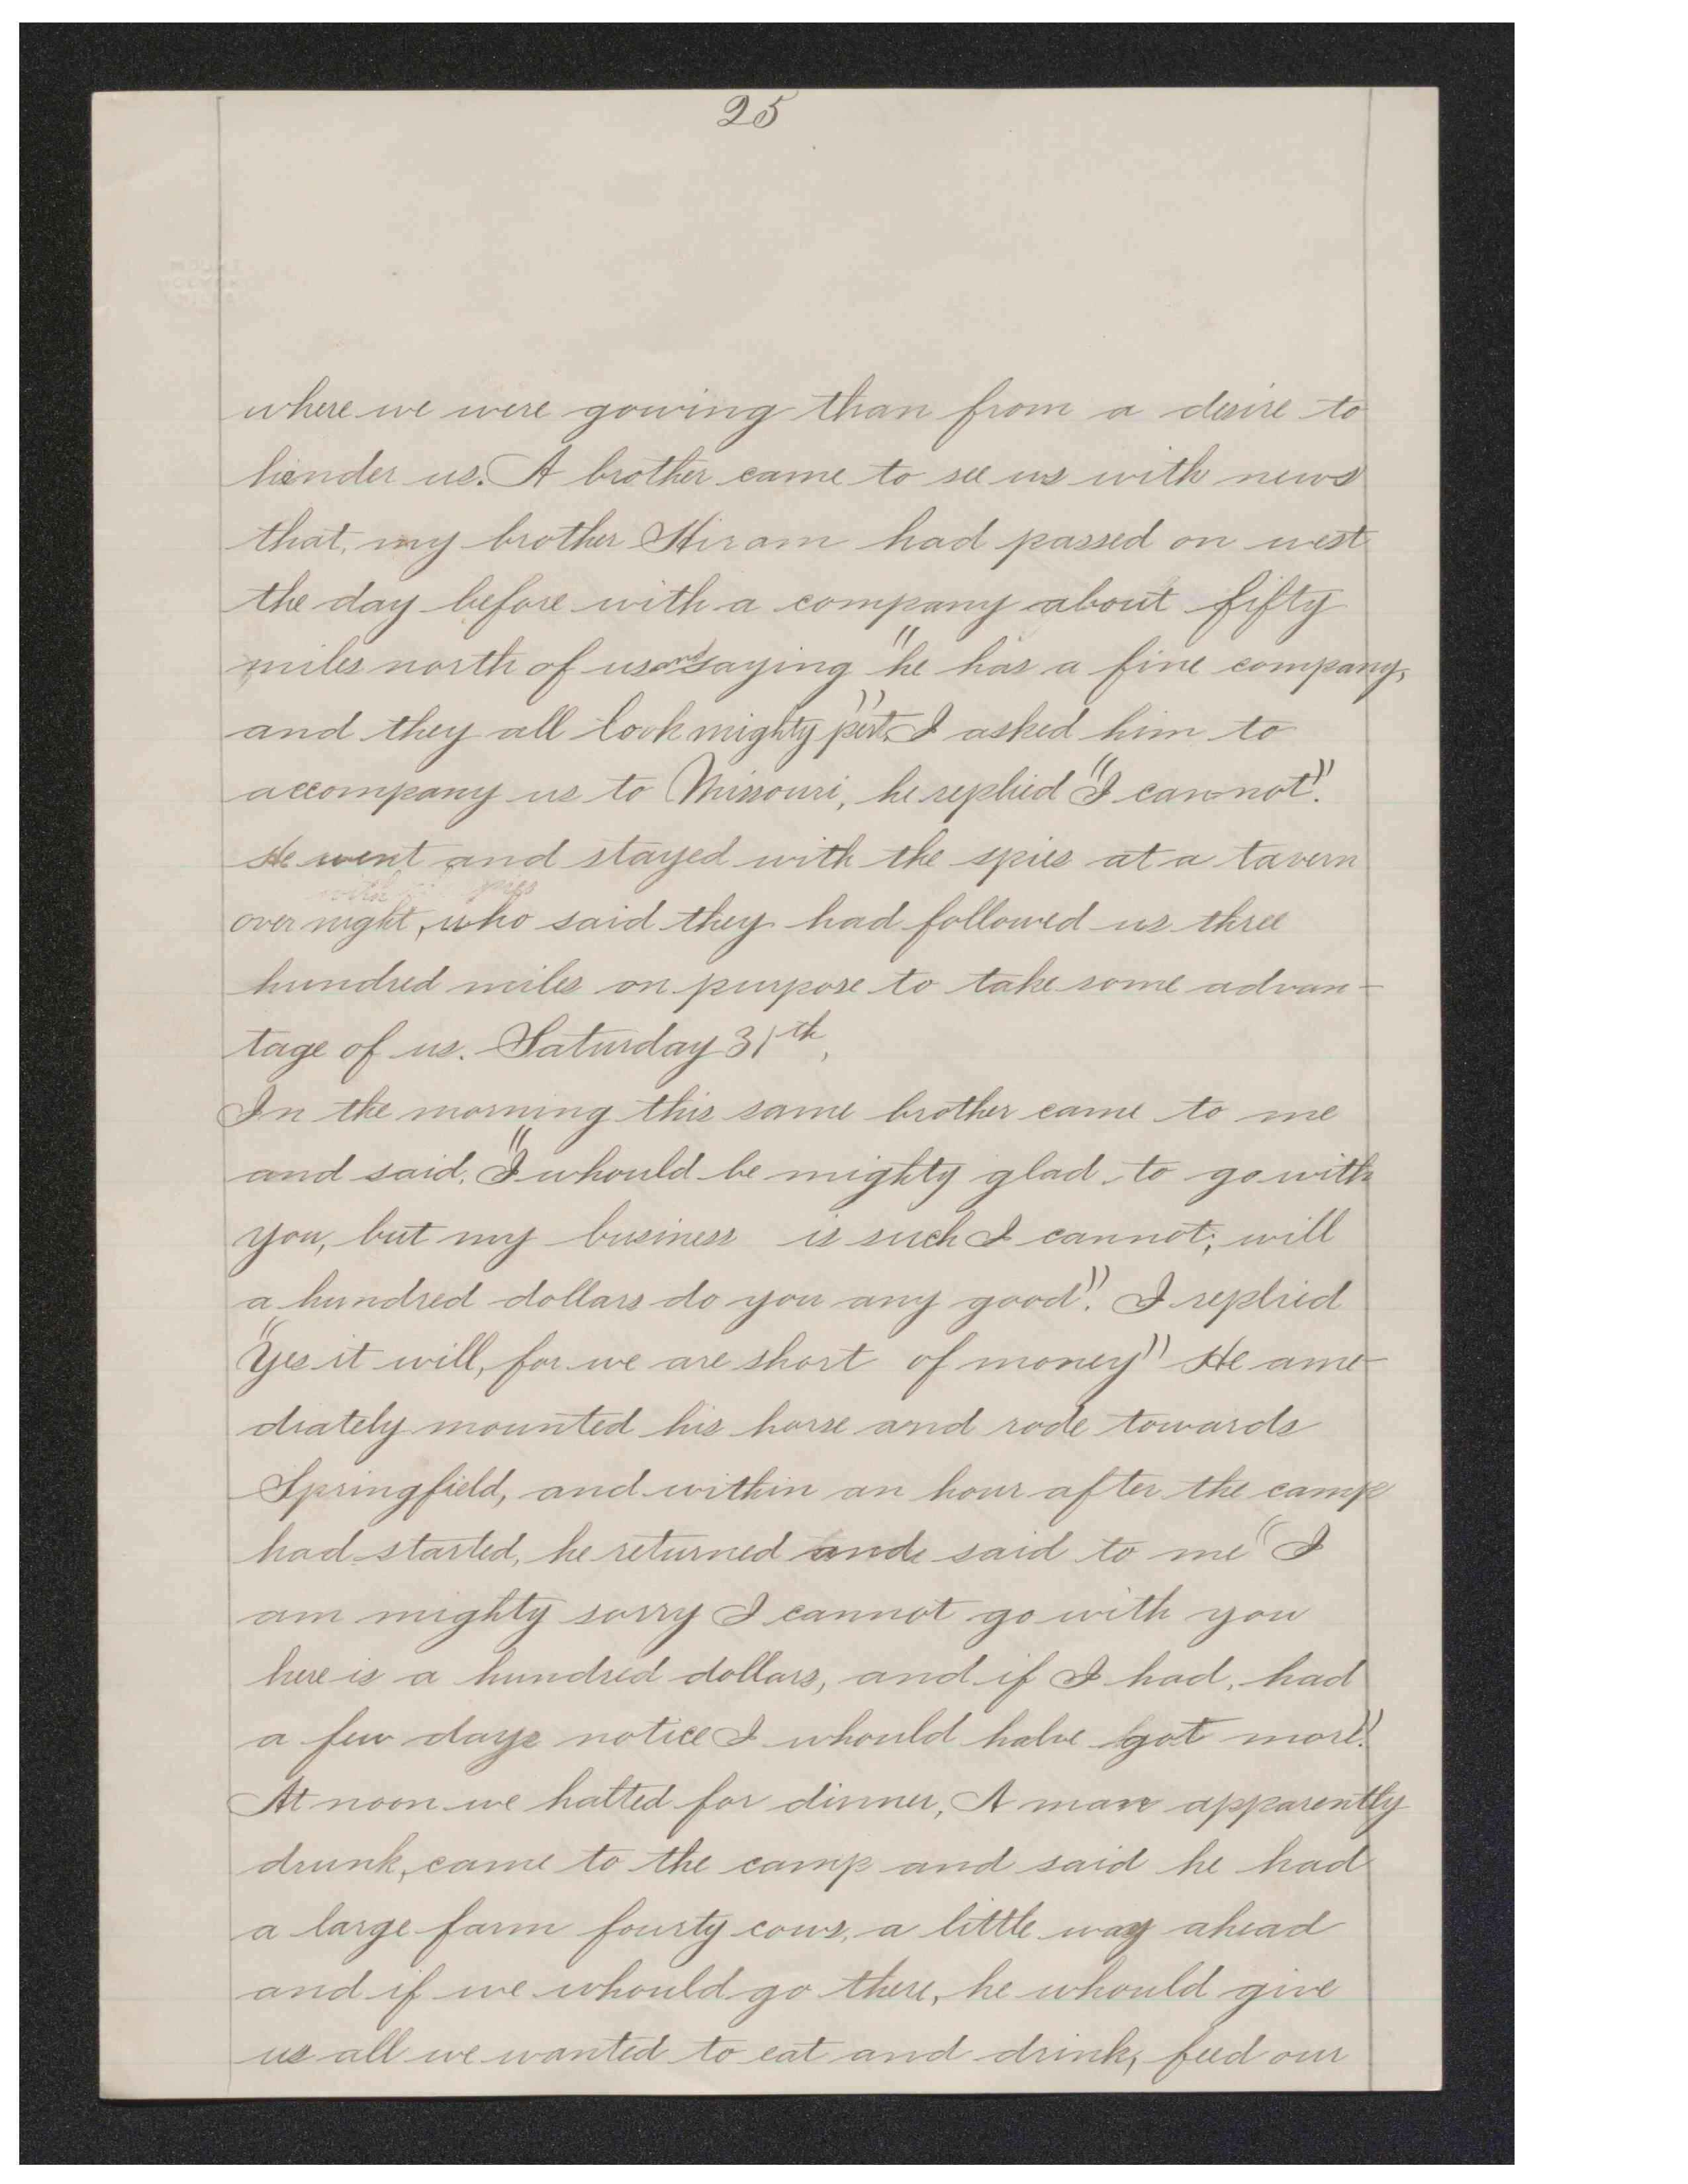 25
where we were gowing than from a desire to
hinder us. A brother came to see us with news
that, my brother Hiram had passed on west
the day before with a company about fifty
miles north of us and saying "he has a fine company,
and they all look mighty pert." I asked him to
accompany us to Missouri, he replied "I cannot".
He went and stayed with the spies at a tavern
with spies
over night, who said they had followed us three
hundred miles on purpose to take some advan-
tage of us. Saturday 31th,
In the morning this same brother came to me
and said, "I whould be mighty glad to go with
you, but my business is such I cannot; will
a hundred dollars do you any good". I replied
"Yes it will, for we are short of money" He ame-
diately mounted his horse and rode towards
Springfield, and within an hour after the camp
had started, he returned and said to me "I
am mighty sorry I cannot go with you
here is a hundred dollars, and if I had, had
a few days notice I whould halve got more."
At noon we halted for dinner, A man apparently
drunk, came to the camp and said he had
a large farm fourty cows, a little way ahead
and if we whould go there, he whould give
us all we wanted to eat and drink, feed our